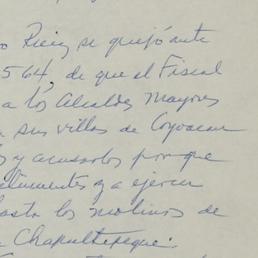 Ruiz se quejó ante
564, de que el Fiscal
a los Alcaldes Mayores
sus villas de Coyoacan
y acusarlos por que
a ejercer
hasta los molinos de
Chapultepeque.